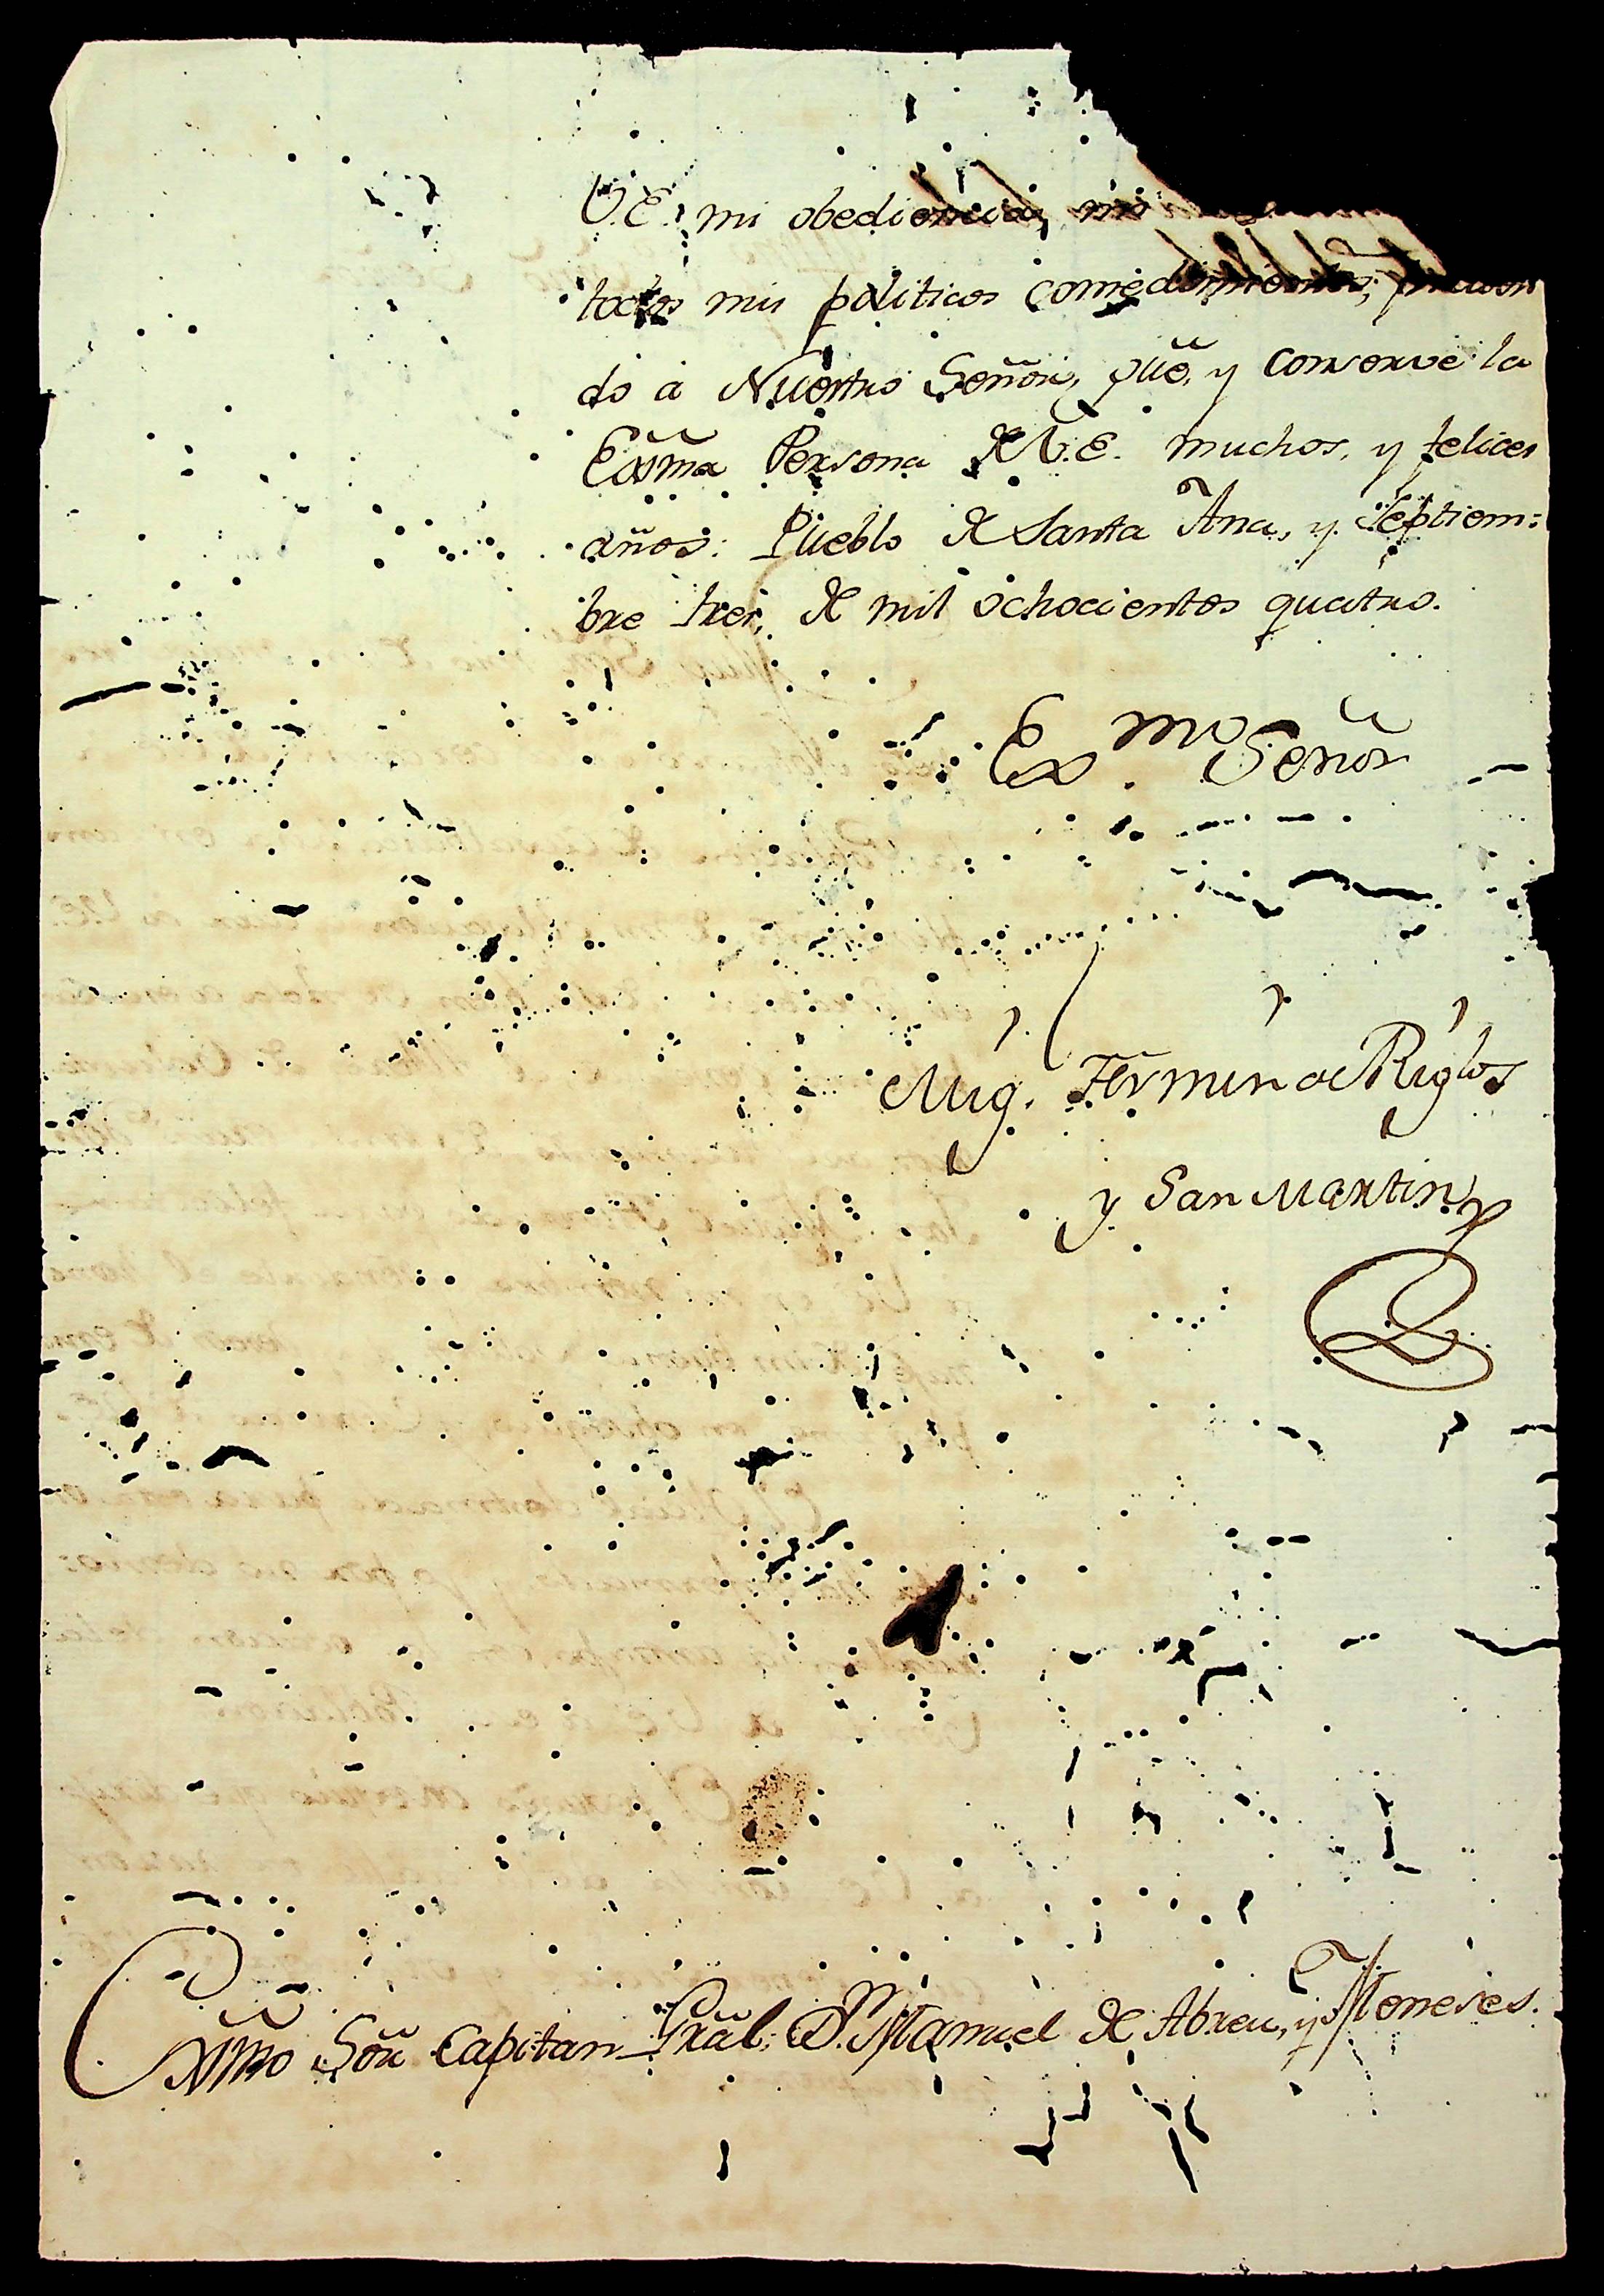 V.E. mi obediencia, mi
todos mis politicos comedimientos;
do à Nuestro Señor, gũe, y conserve la
Exm̃a Persona de V.E. muchos, y felices
años: Pueblo de Santa Ana, y Septiem:
bre tres, de mil ochocientos quatro.
Ex.mo Señor
Mig.l Fermin de Riglos
y San Martin
Exm̃o Sõr Capitan Grãl. D.n Manuel de Abreu, y Meneses.